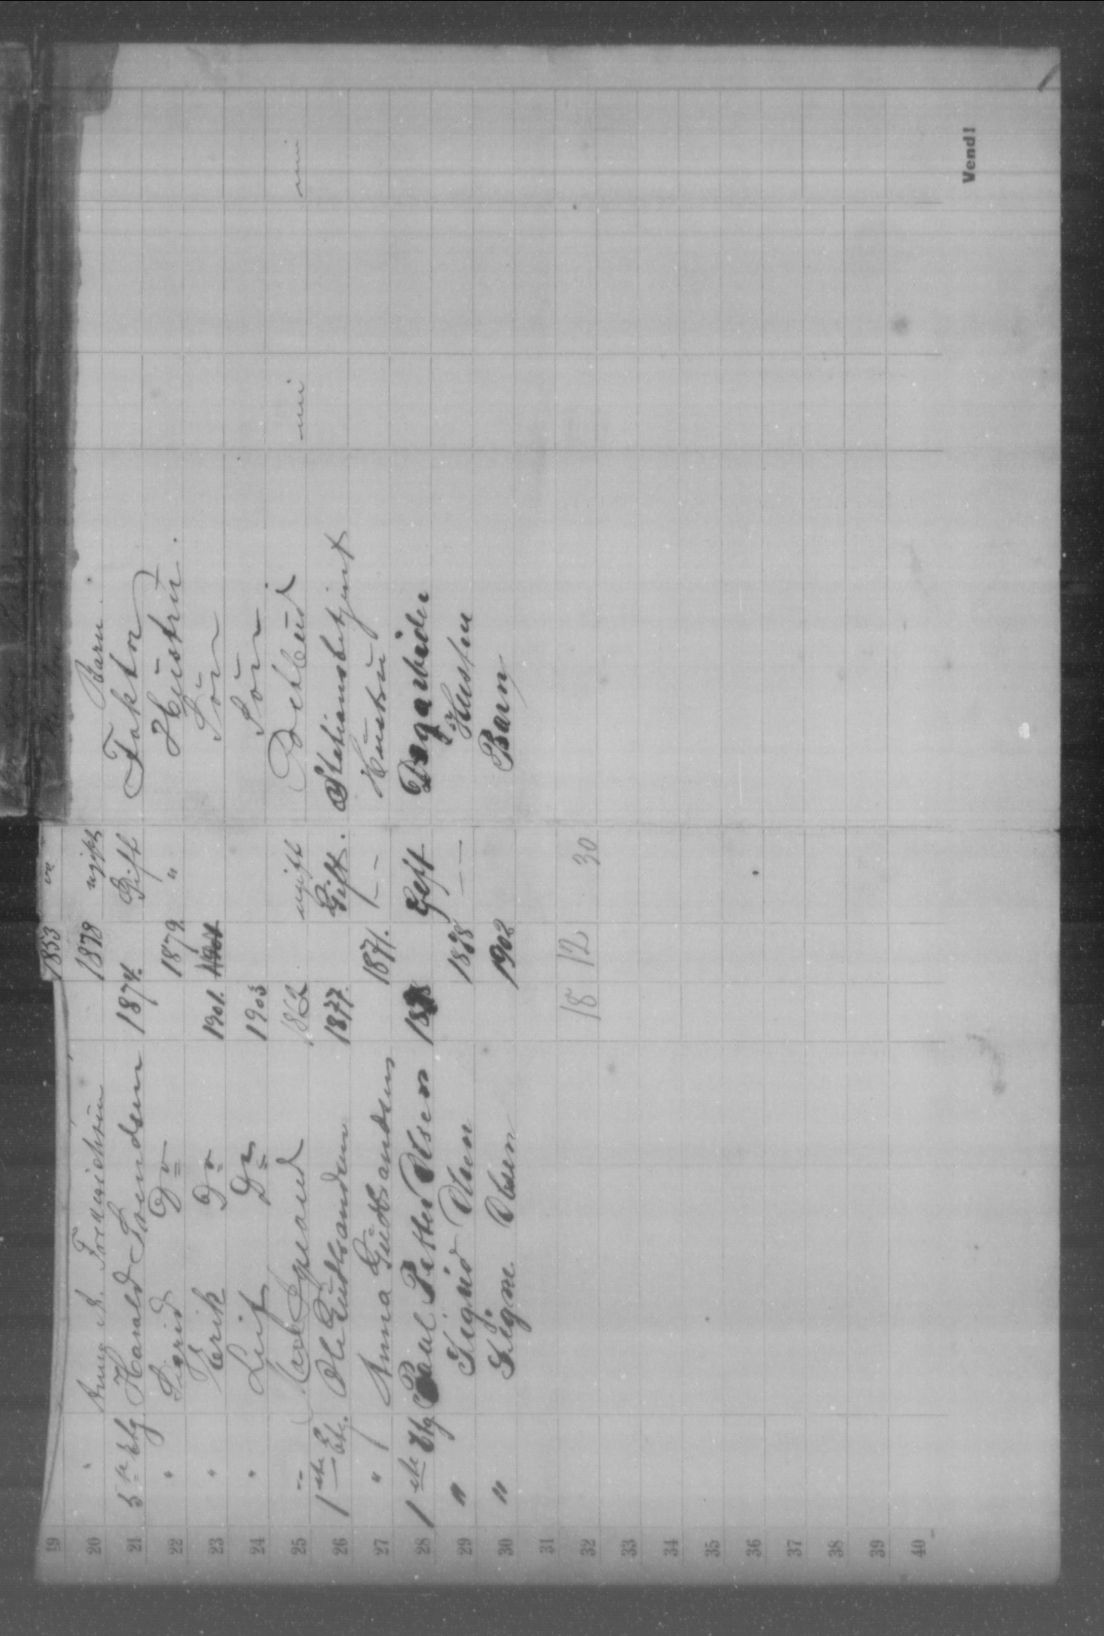 19 1853
20 " Anna A. 1878 ugift Barn
21 3die Etg Harald Svendsen 1874. Gift Faktor
22 " Sigrid Do 1879. " Hustru.
23 " Erik Do 1901. Søn
24 " Leif Do 1903 Søn
25 " 1862 ugift
26 1ste Etg. Ole Gudbrandsen 1877. Gift. Stationsbetjent
27 " Anna Gudbrandsen 1871. — Hustru
28 1ste Etg Paul Petter Olsen Gift Dagarbeider
29 " Sigrid Olsen — Hustru
30 " Signe Olsen 1902 Barn
31
32 18 12 30
33
34
35
36
37
38
39
40
Vend!